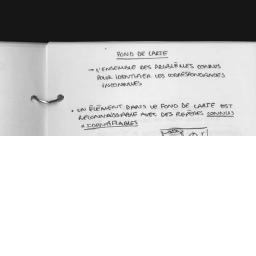 FOND DE CARTE
→ L'ENSEMBLE DES PROBLÈMES CONNUS
POUR IDENTIFIER LES CORRESPONDANCES
INCONNUES
• UN ÉLÉMENT DANS LE FOND DE CARTE EST
RECONNAISSABLE AVEC DES REPÈRES CONNUS
+ IDENTIFIABLES